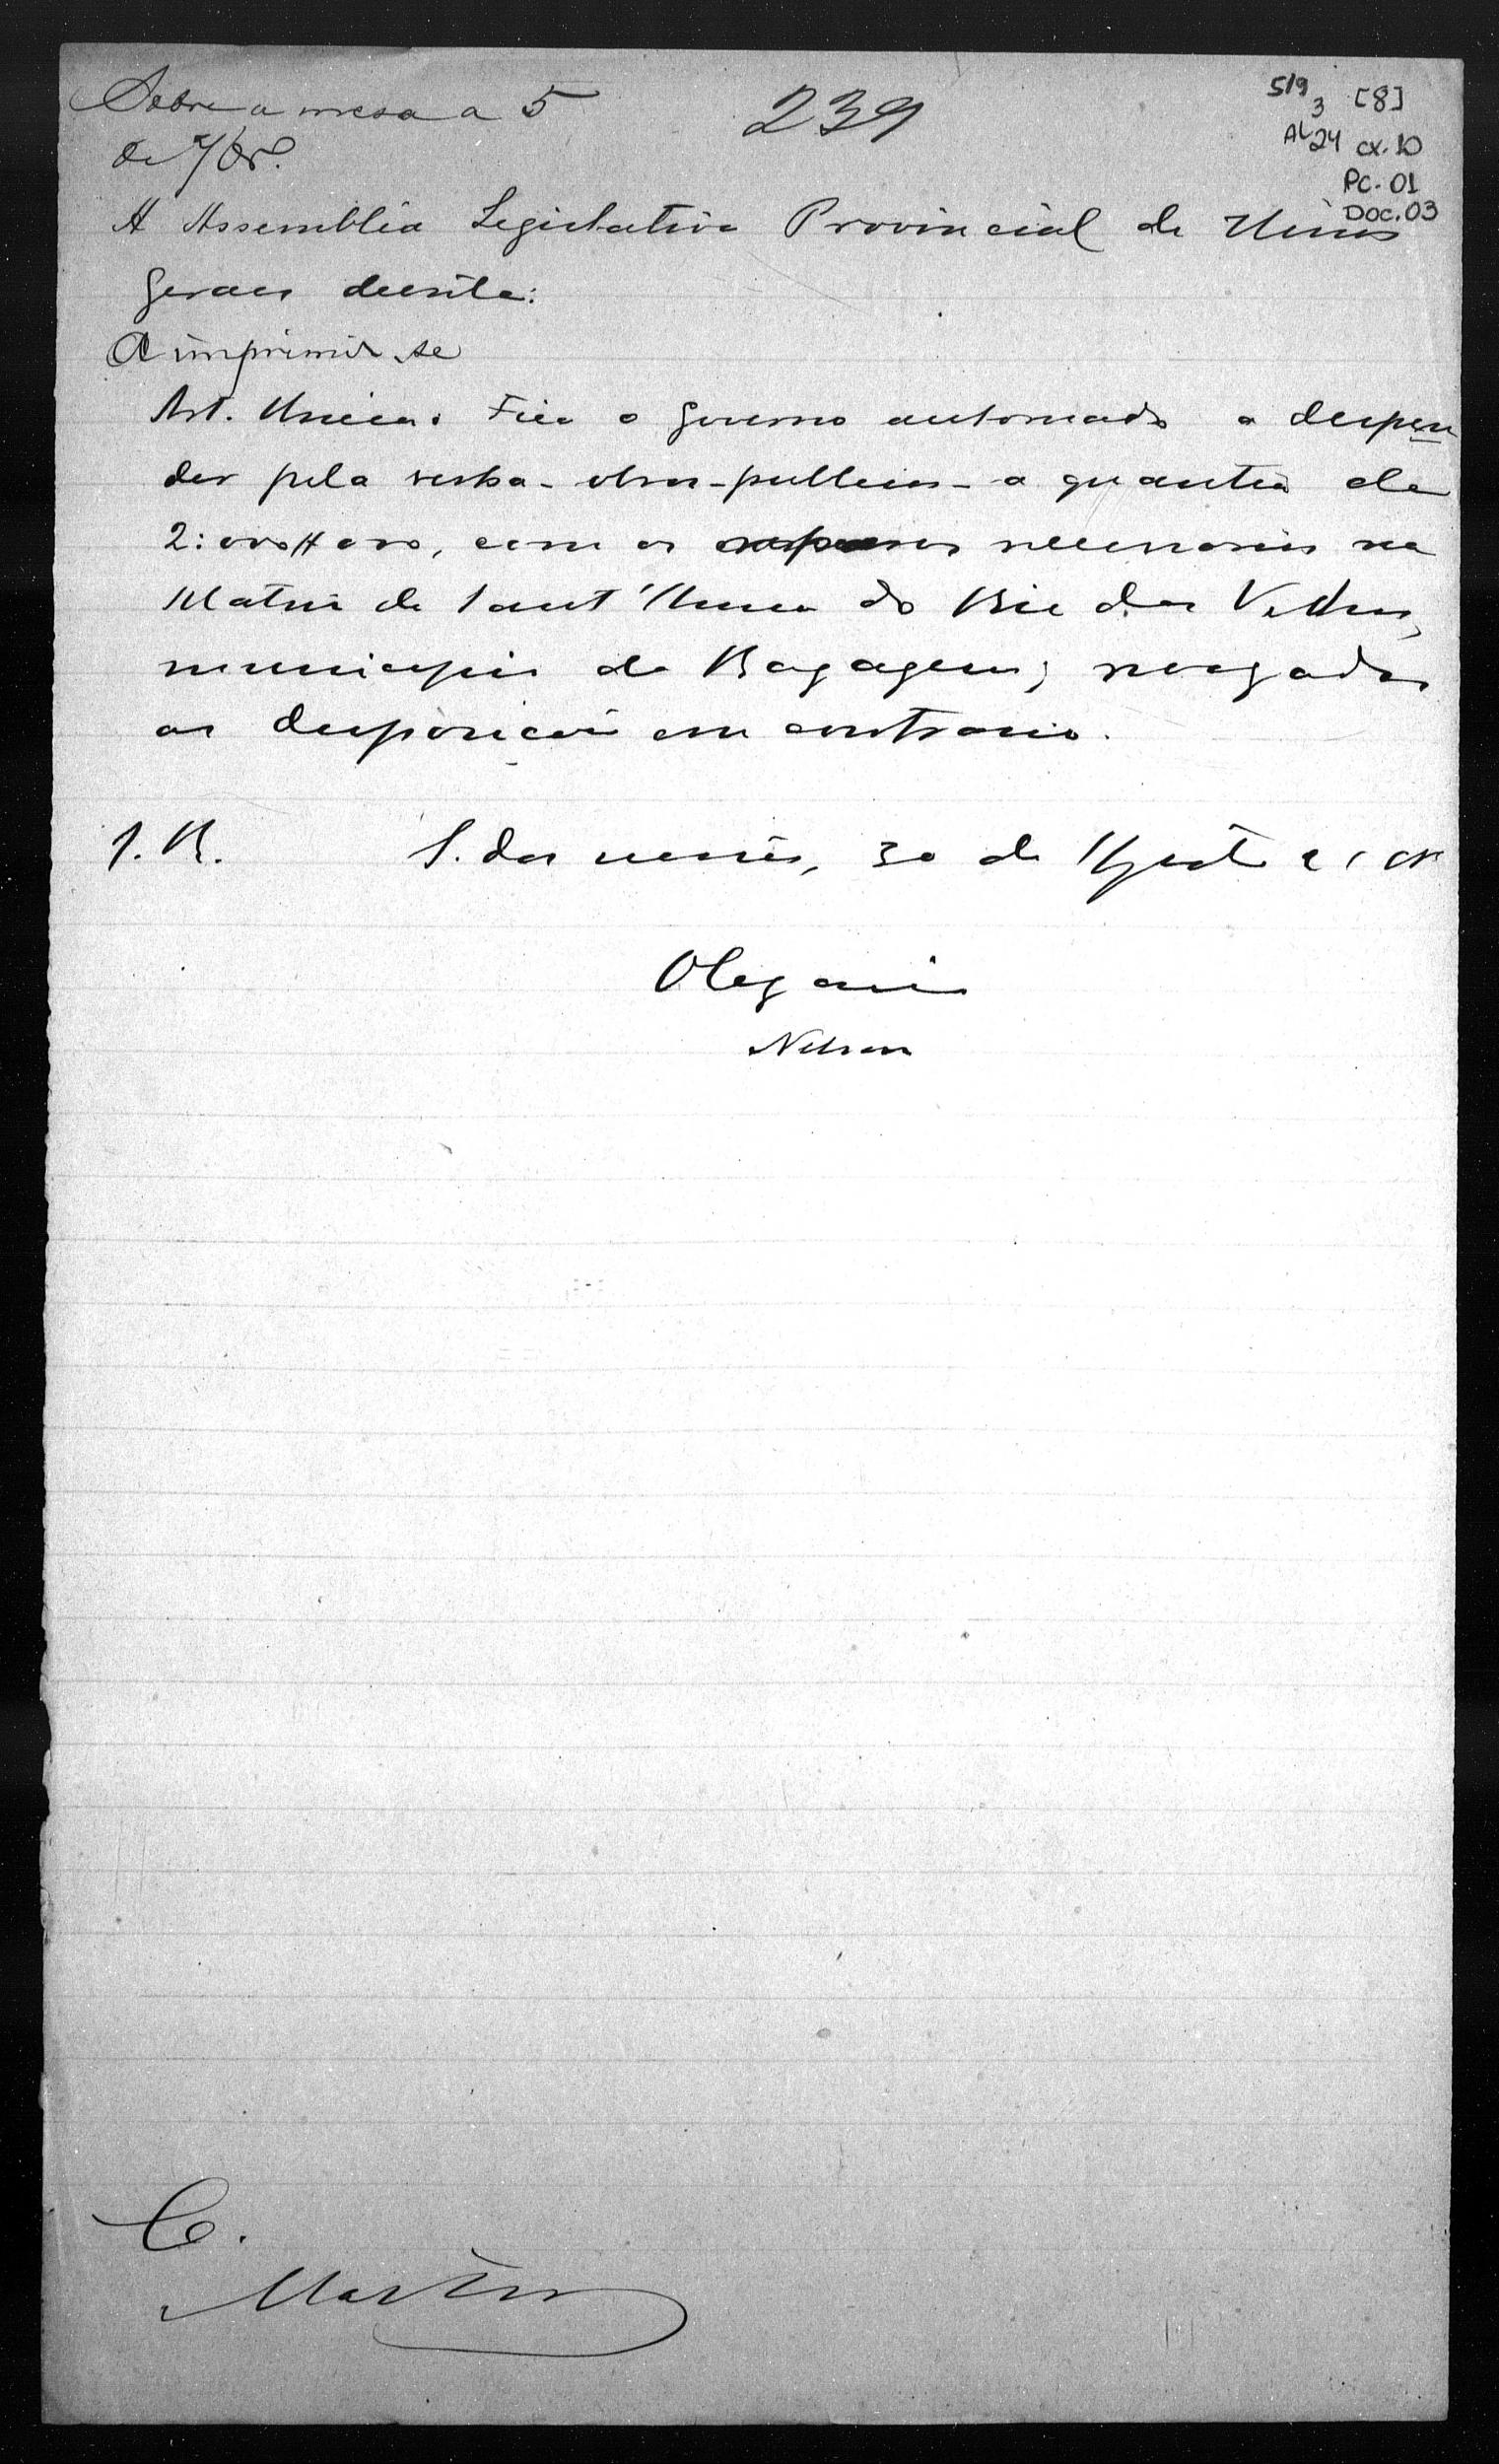 Sobre a mesa a 5
de 7br.
239
519
3 [8]
AL 24 cx. 10
PC. 01
DOC. 03
A Assembléa Legislativa Provincial de Minas
Geraes decreta:
A imprimir-se
Art. Unico. Fica o governo autorisado a despen
der pela verba - obras publicas - a quantia de
2:000$000, com os reparos necessarios na
Matriz de Sant'Anna do Rio das Velhas,
municipio da Bagagem; revogadas
as disposições em contrario.
S. R. S. das sessões, 30 de Agosto
Olegario
Nelson
C.
Martins